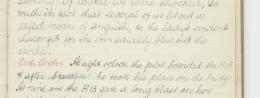 of course we were shocked, so
much in fact that several of us let out a
stifled moan of anguish, to the lady's evident
discomfort for she immediately blew out the
candle.
At eight o'clock the pilot boarded the A13
& after breakfast he took his place on the bridge
At nine am the A13 gave a long blast on her